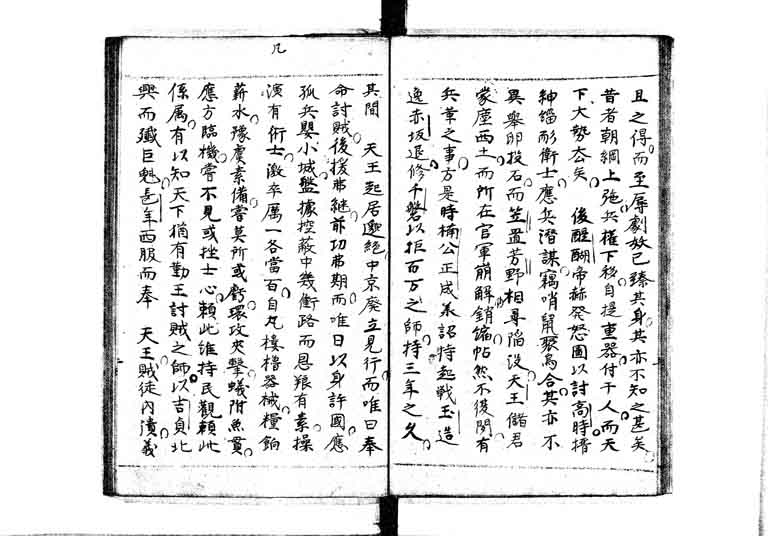 且之得而至辱劇妖已臻其身其亦不知之甚矣
昔者朝綱上弛兵權下移自提重器付于人而天
下大勢太矣　後醍醐帝赫發怒圖以討高時搢
紳緇彤衛士應兵潜謀竊哨鼠聚烏合其亦不
異舉卵投石而笠置芳野相尋陷没天王儲君
蒙塵西土而所在官軍崩解銷縮帖然不復聞有
兵革之事方是時楠公正成義詔特起戰玉造
逸赤坂退修千磐以拒百万之師持三年之久
其間　天王起居邈絶中京廢立見行而唯曰奉
命討賊後援弗継前功弗期而唯日以身許國應
孤兵嬰小城盤據控蔽中幾衝路而恩狼有素操
演有術士激卒厲一各當百自丸樓櫓器械糧餉
薪水豫虞素備嘗莫所或虧環攻夾擊蟻附魚貫
應方臨機嘗不見或挫士心頼此維持民觀頼此
係属有以知天下猶有勤王討賊之師以吉貞北
興而殲巨魁長年西服而奉　天王賊徒内潰義
凡